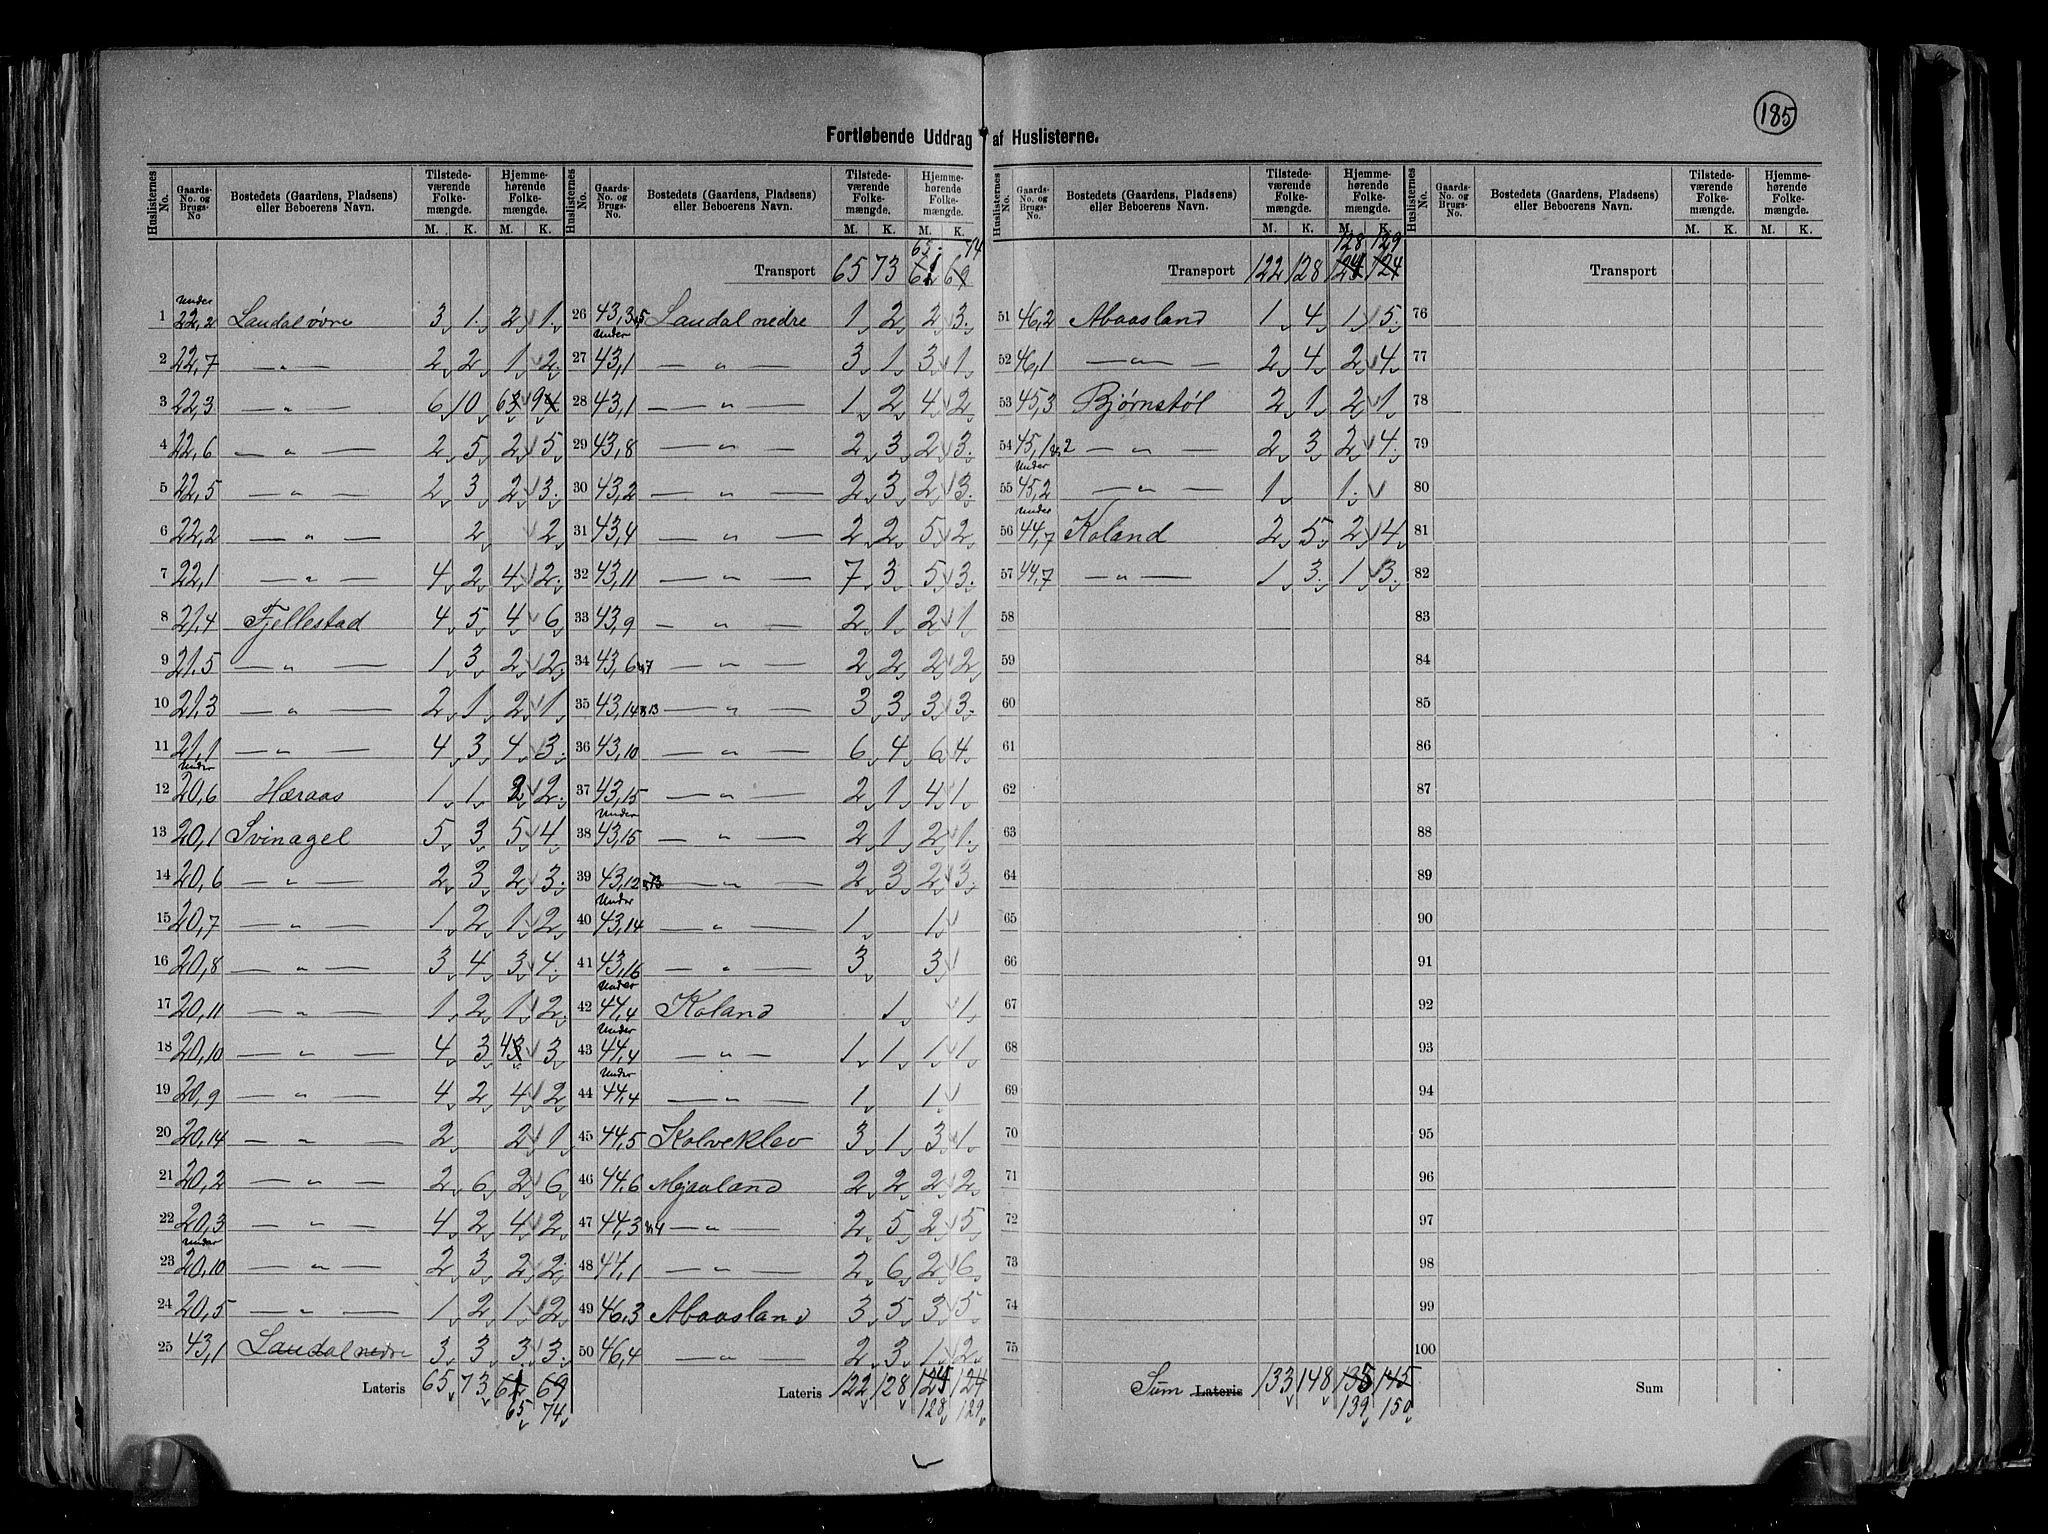 185
Fortløbende Uddrag af Huslisterne.
Huslisternes No. Gaards-No. og Brugs-No Bostedets (Gaardens, Pladsens) eller Beboerens Navn. Tilstedeværende Folkemængde. M. K. Hjemmehørende Folkemængde. M. K.
1 Under 22,2 Laudal øvre 3 1 2 1
2 22,7 — " — 2 2 1 2
3 22,3 — " — 6 10 6 9
4 22,6 — " — 2 5 2 5
5 22,5 — " — 2 3 2 3
6 22,2 — " — 2 2
7 22,1 — " — 4 2 4 2
8 21,4 Fjellestad 4 5 4 6
9 21,5 — " — 1 3 2 2
10 21,3 — " — 2 1 2 1
11 21,1 — " — 4 3 4 3
12 Under 20,6 Høraas 1 1 2 2
13 20,1 Svinagel 5 3 5 4
14 20,6 — " — 2 3 2 3
15 20,7 — " — 1 2 1 2
16 20,8 — " — 3 4 3 4
17 20,11 — " — 1 2 1 2
18 20,10 — " — 4 3 4 3
19 20,9 — " — 4 2 4 2
20 20,14 — " — 2 2 1
21 20,2 — " — 2 6 2 6
22 20,3 — " — 4 2 4 2
23 Under 20,10 — " — 2 3 2 2
24 20,5 — " — 1 2 1 2
25 43,1 Laudal nedre 3 3 3 3
Lateris 65 73 61 69
65 74
Huslisternes No. Gaards-No. og Brugs-No. Bostedets (Gaardens, Pladsens) eller Beboerens Navn. Tilstedeværende Folkemængde. M. K. Hjemmehørende Folkemængde. M. K.
65 74
Transport 65 73 61 69
26 43,3 5 Laudal nedre 1 2 2 3
27 Under 43,1 — " — 3 1 3 1
28 43,1 — " — 1 2 4 2
29 43,8 — " — 2 3 2 3
30 43,2 — " — 2 3 2 3
31 43,4 — " — 2 2 5 2
32 43,11 — " — 7 3 5 3
33 43,9 — " — 2 1 2 1
34 43,6 7 — " — 2 2 2 2
35 43,14 13 — " — 3 3 3 3
36 43,10 — " — 6 4 6 4
37 43,15 — " — 2 1 4 1
38 Under 43,15 — " — 2 1 2 1
39 43,12 13 — " — 2 3 2 3
40 Under 43,14 — " — 1 1
41 43,16 — " — 3 3
42 Under 44,4 Koland 1 1
43 Under 44,4 — " — 1 1 1 1
44 Under 44,4 — " — 1 1
45 44,5 Kolveklev 3 1 3 1
46 44,6 Mjaaland 2 2 2 2
47 44,3 4 — " — 2 5 2 5
48 44,1 — " — 2 6 2 6
49 46,3 Abaasland 3 5 3 5
50 46,4 — " — 2 3 1 2
Lateris 122 128 124 124
128 129
Huslisternes No. Gaards-No. og Brugs-No. Bostedets (Gaardens, Pladsens) eller Beboerens Navn. Tilstedeværende Folkemængde. M. K. Hjemmehørende Folkemængde. M. K.
128 129
Transport 122 128 124 124
51 46,2 Abaasland 1 4 1 5
52 46,1 — " — 2 4 2 4
53 45,3 Bjørnstøl 2 1 2 1
54 45,1 2 — " — 2 3 2 4
55 Under 45,2 — " — 1 1
56 Under 44,7 Koland 2 5 2 4
57 44,7 — " — 1 3 1 3
58
59
60
61
62
63
64
65
66
67
68
69
70
71
72
73
74
75
Sum Lateris 133 148 135 145
139 150
Huslisternes No. Gaards-No. og Brugs-No. Bostedets (Gaardens, Pladsens) eller Beboerens Navn. Tilstedeværende Folkemængde. M. K. Hjemmehørende Folkemængde. M. K.
Transport
76
77
78
79
80
81
82
83
84
85
86
87
88
89
90
91
92
93
94
95
96
97
98
99
100
Sum